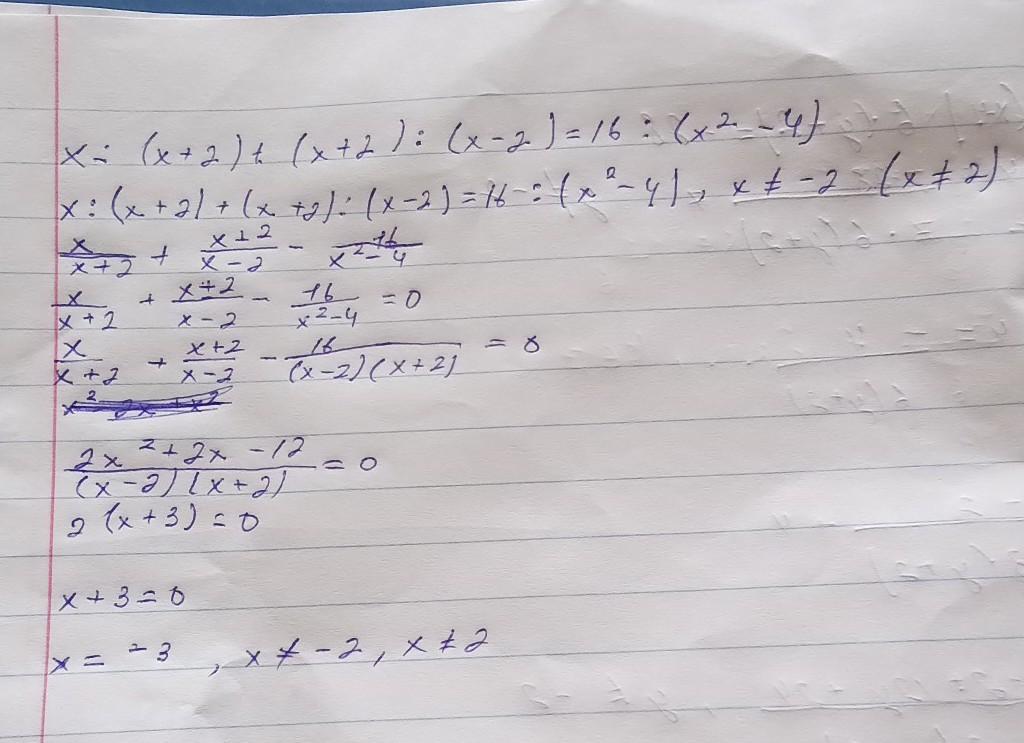 x : (x+2) + (x+2) : (x-2) = 16 : (x² - 4)
x : (x+2) + (x+2) : (x-2) = 16 : (x² - 4), x ≠ -2 (x ≠ 2)
x/(x+2) + (x+2)/(x-2) - 16/(x²-4)
x/(x+2) + (x+2)/(x-2) - 16/(x²-4) = 0
x/(x+2) + (x+2)/(x-2) - 16/((x-2)(x+2)) = 0
(2x²+2x-12)/((x-2)(x+2)) = 0
2(x+3) = 0
x+3 = 0
x = -3, x ≠ -2, x ≠ 2